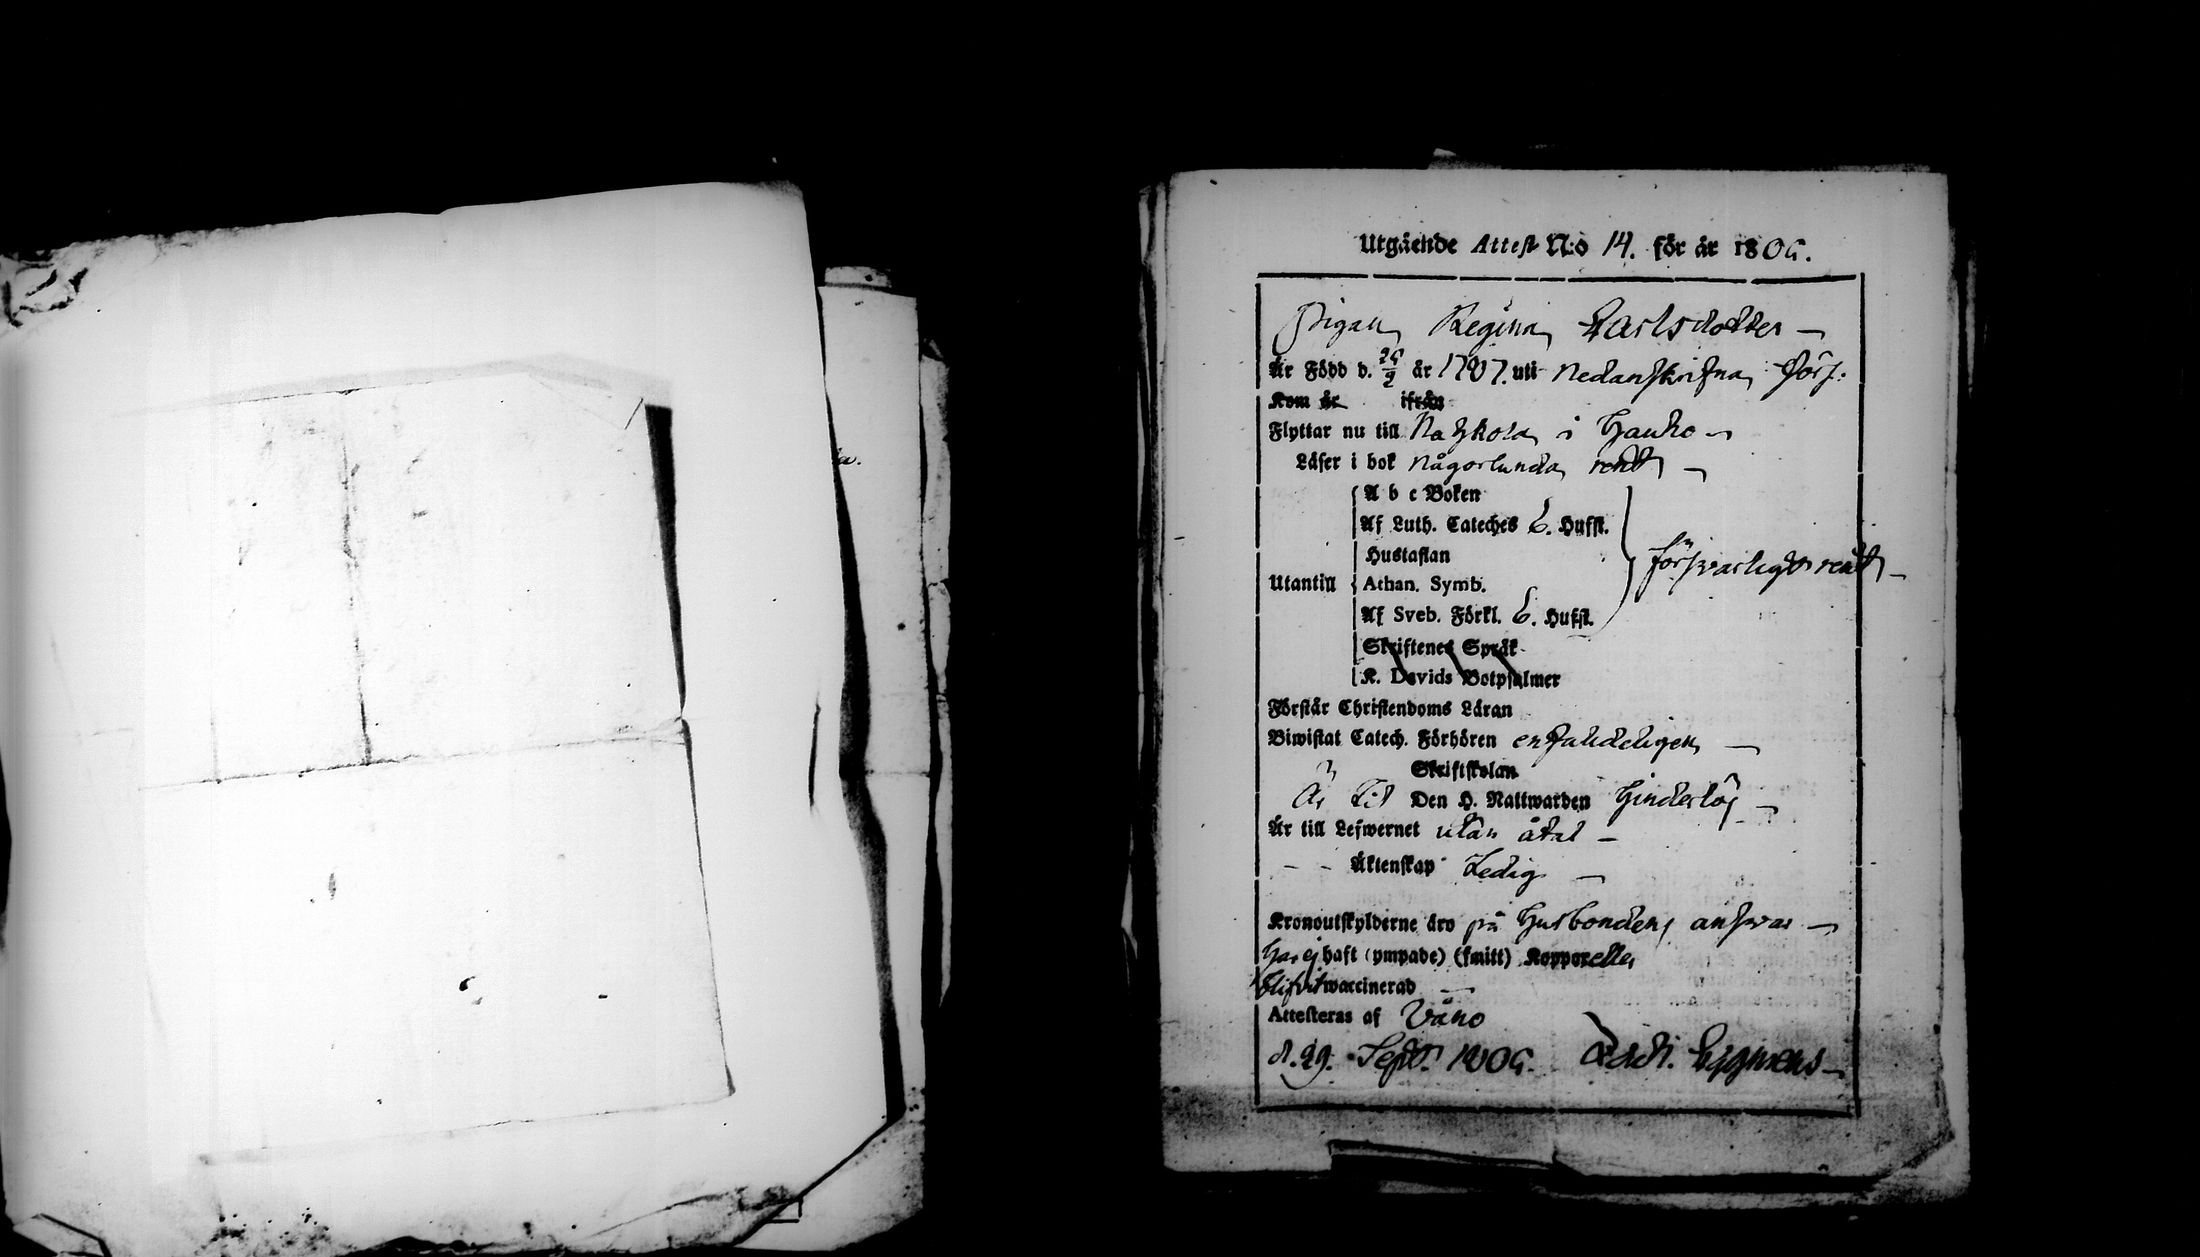 Utgående Attest N:o 14. för år 180
Pigan Regina Carlsdotter —
Är Född d. år 1787. uti nedanskrifna förs:
Kom år ifrån
Flyttar nu till i Hauho —
Läser i bok någorlunda rent —
A b c Boken
Af Luth. Cateches 6. Hufst.
Hustaflan
försvarligt rent —
Utantill Athan. Symb.
Af Sveb. Förkl. 6. Hufst.
Skriftenes Språk
K. Davids Botpsalmer
Förstår Christendoms Läran
Biwistat Catech. Förhören —
Skriftskolan
Är til Den H. Nattwarden hinderlös —
Är till Lefwernet utan åtal —
- - Äktenskap Ledig —
Kronoutskylderne äro på Husbondens answar —
har ej haft (ympade) (smitt) Kopporeller
blifvit waccinerad —
Attesteras af Våno
d. 29. Sept. 180